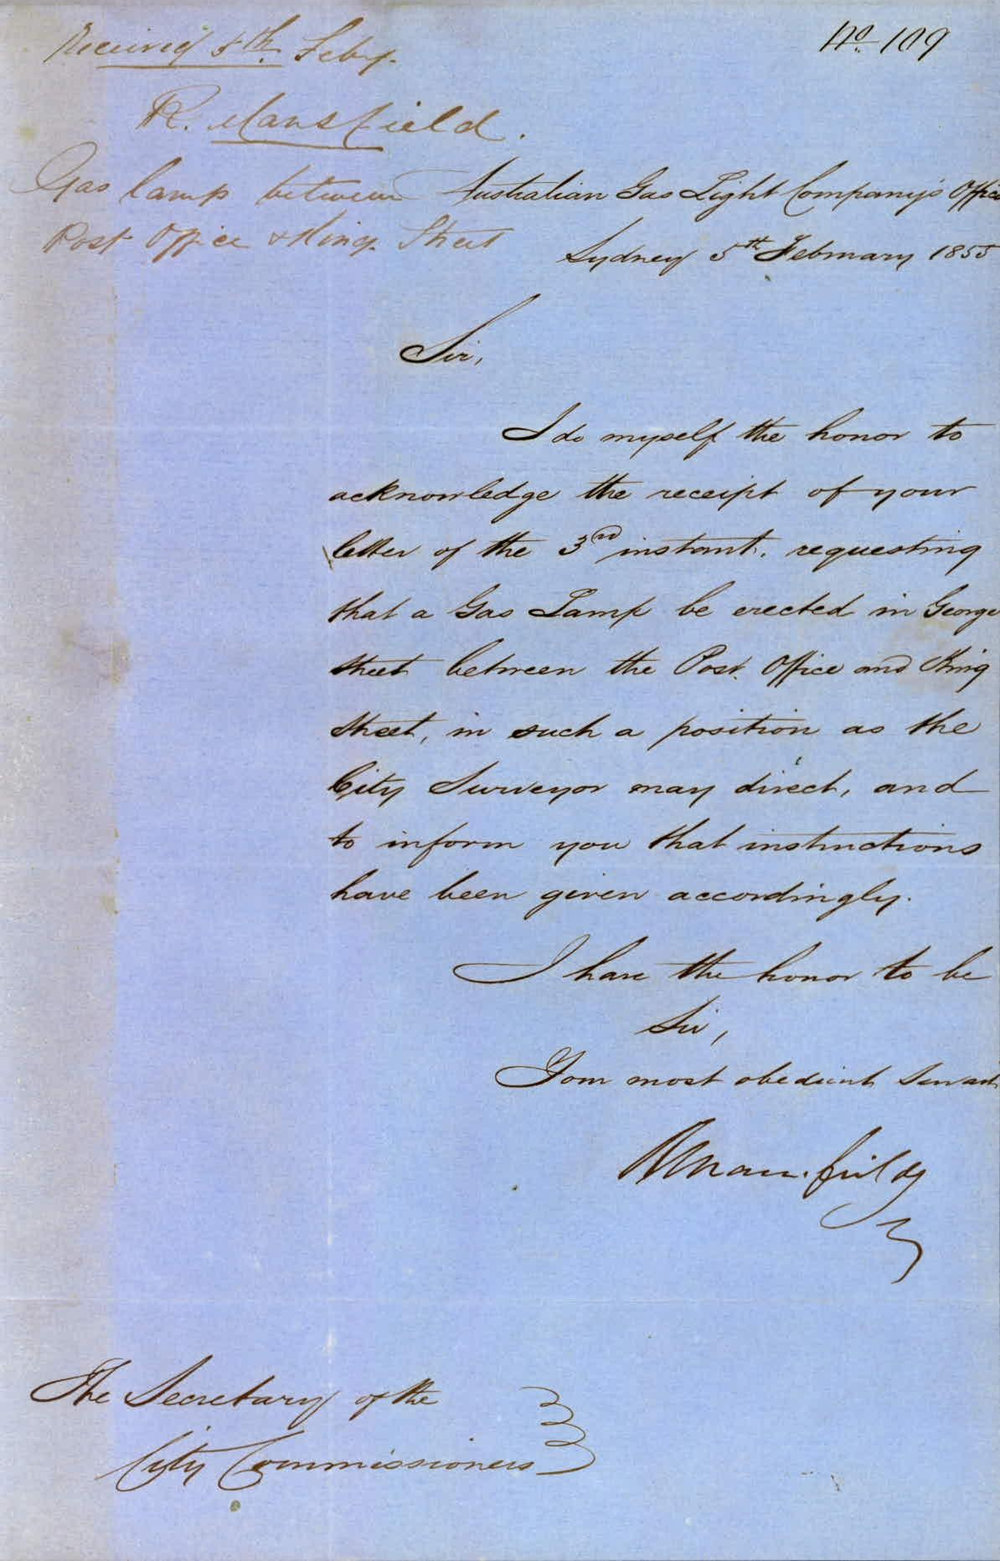 No. 109
Received 8th. Feby.
R. Mansfield.
Gas lamp between
Post Office & King Street
Australian Gas Light Company's Office
Sydney 5th February 1855
Sir,
I do myself the honor to
acknowledge the receipt of your
letter of the 3rd instant, requesting
that a Gas Lamp be erected in George
Street between the Post Office and King
Street, in such a position as the
City Surveyor may direct, and
to inform you that instructions
have been given accordingly.
I have the honor to be
Sir,
Your most obedient Servant
R Mansfield
The Secretary of the
City Commissioners